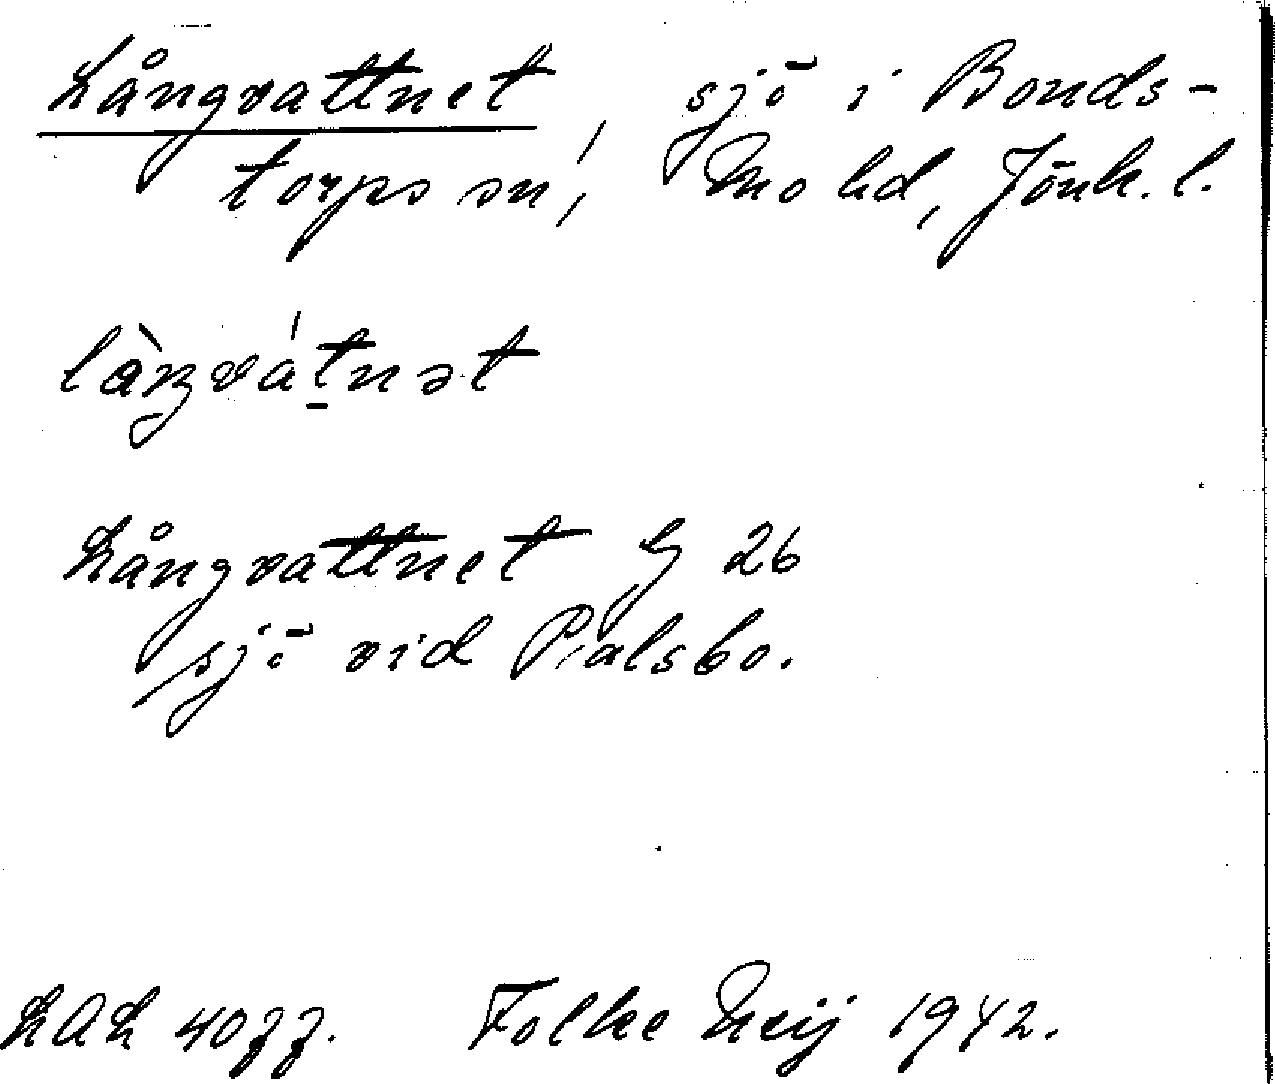 Långvattnet, sjö i Bonds-
torps sn, Mo hd, Jönk. l.
làŋvátnət
Långvattnet G 26
sjö vid Pialsbo.
LAL 4077. Folke Neij 1942.